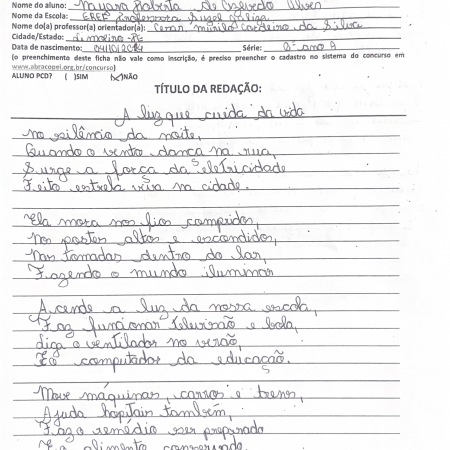 Nome do aluno: Nayara Roberta de Azevedo Alves
Nome da Escola: EREF Professora
Nome do(a) professor(a) orientador(a): Cesar Murilo Cordeiro da Silva
Cidade/Estado: Limoeiro - PE
Data de nascimento: 04/10/2014 Série: ano A
(o preenchimento desta ficha não vale como inscrição, é preciso preencher o cadastro no sistema do concurso em
www.abracopel.org.br/concurso)
ALUNO PCD? ( )SIM (X)NÃO
TÍTULO DA REDAÇÃO:
A luz que cuida da vida
no silêncio da noite,
Quando o vento danca na rua,
Surge a força da eletricidade
Feito estrela viva na cidade.
Ela mora nos fios compridos,
Nos postes altos e escondidos,
Nas tomadas dentro do lar,
Fazendo o mundo iluminar
Acende a luz da nossa escola,
Faz funcionar televisão e bola,
diga o ventilador no verão,
E o computador da educação.
Move máquinas, carros e trens,
Ajuda hopitais também,
Faz o remédio ser preparado
E o alimento conservado.